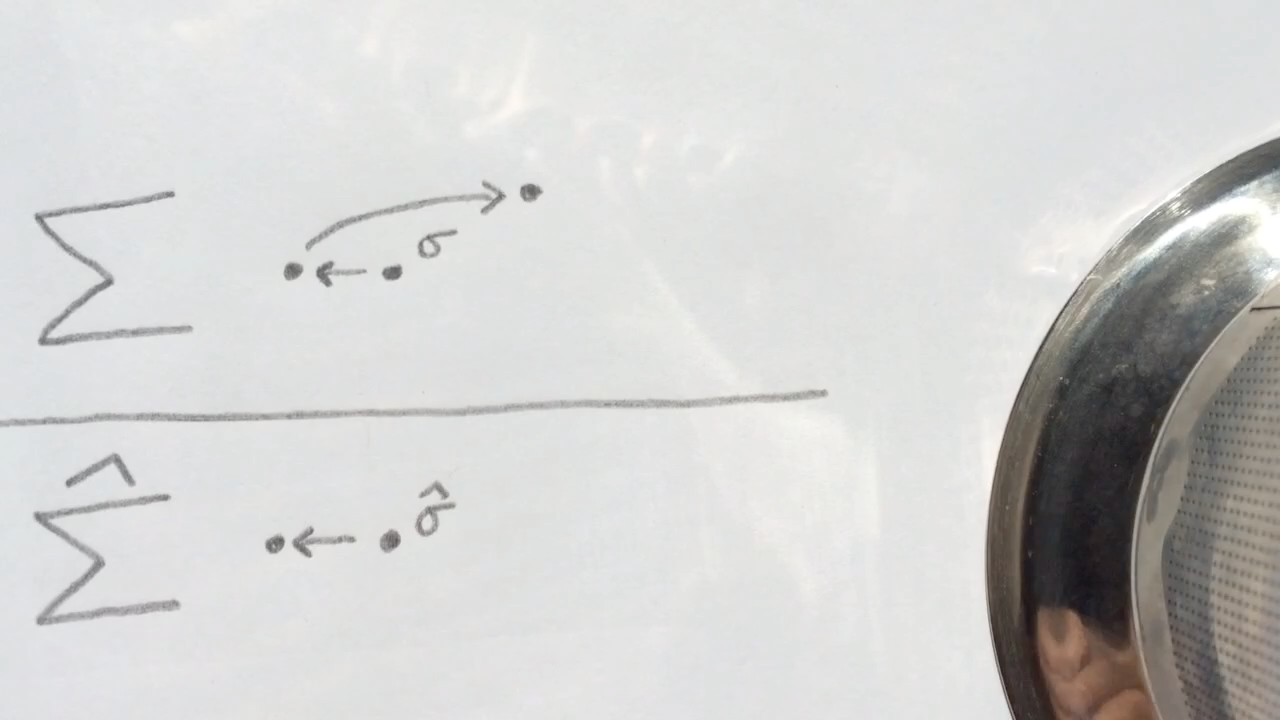 Σ • ← • σ → •
Σ̂ • ← • σ̂